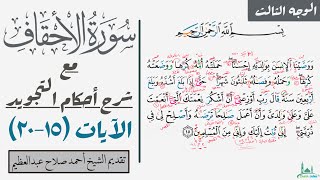 الوجه الثالث
سُورَةُ الأَحْقَافِ
مع
شرح أحكام التجويد
الآيات (١٥-٢٠)
تقديم الشيخ أحمد صلاح عبدالعظيم
بِسْمِ اللَّهِ الرَّحْمَٰنِ الرَّحِيمِ
وَوَصَّيْنَا ٱلْإِنسَٰنَ بِوَٰلِدَيْهِ إِحْسَٰنًا ۖ حَمَلَتْهُ أُمُّهُۥ كُرْهًا وَوَضَعَتْهُ
كُرْهًا ۖ وَحَمْلُهُۥ وَفِصَٰلُهُۥ ثَلَٰثُونَ شَهْرًا ۚ حَتَّىٰٓ إِذَا بَلَغَ أَشُدَّهُۥ وَبَلَغَ
أَرْبَعِينَ سَنَةً قَالَ رَبِّ أَوْزِعْنِىٓ أَنْ أَشْكُرَ نِعْمَتَكَ ٱلَّتِىٓ أَنْعَمْتَ
عَلَىَّ وَعَلَىٰ وَٰلِدَىَّ وَأَنْ أَعْمَلَ صَٰلِحًا تَرْضَىٰهُ وَأَصْلِحْ لِى فِى
ذُرِّيَّتِىٓ ۖ إِنِّى تُبْتُ إِلَيْكَ وَإِنِّى مِنَ ٱلْمُسْلِمِينَ ١٥